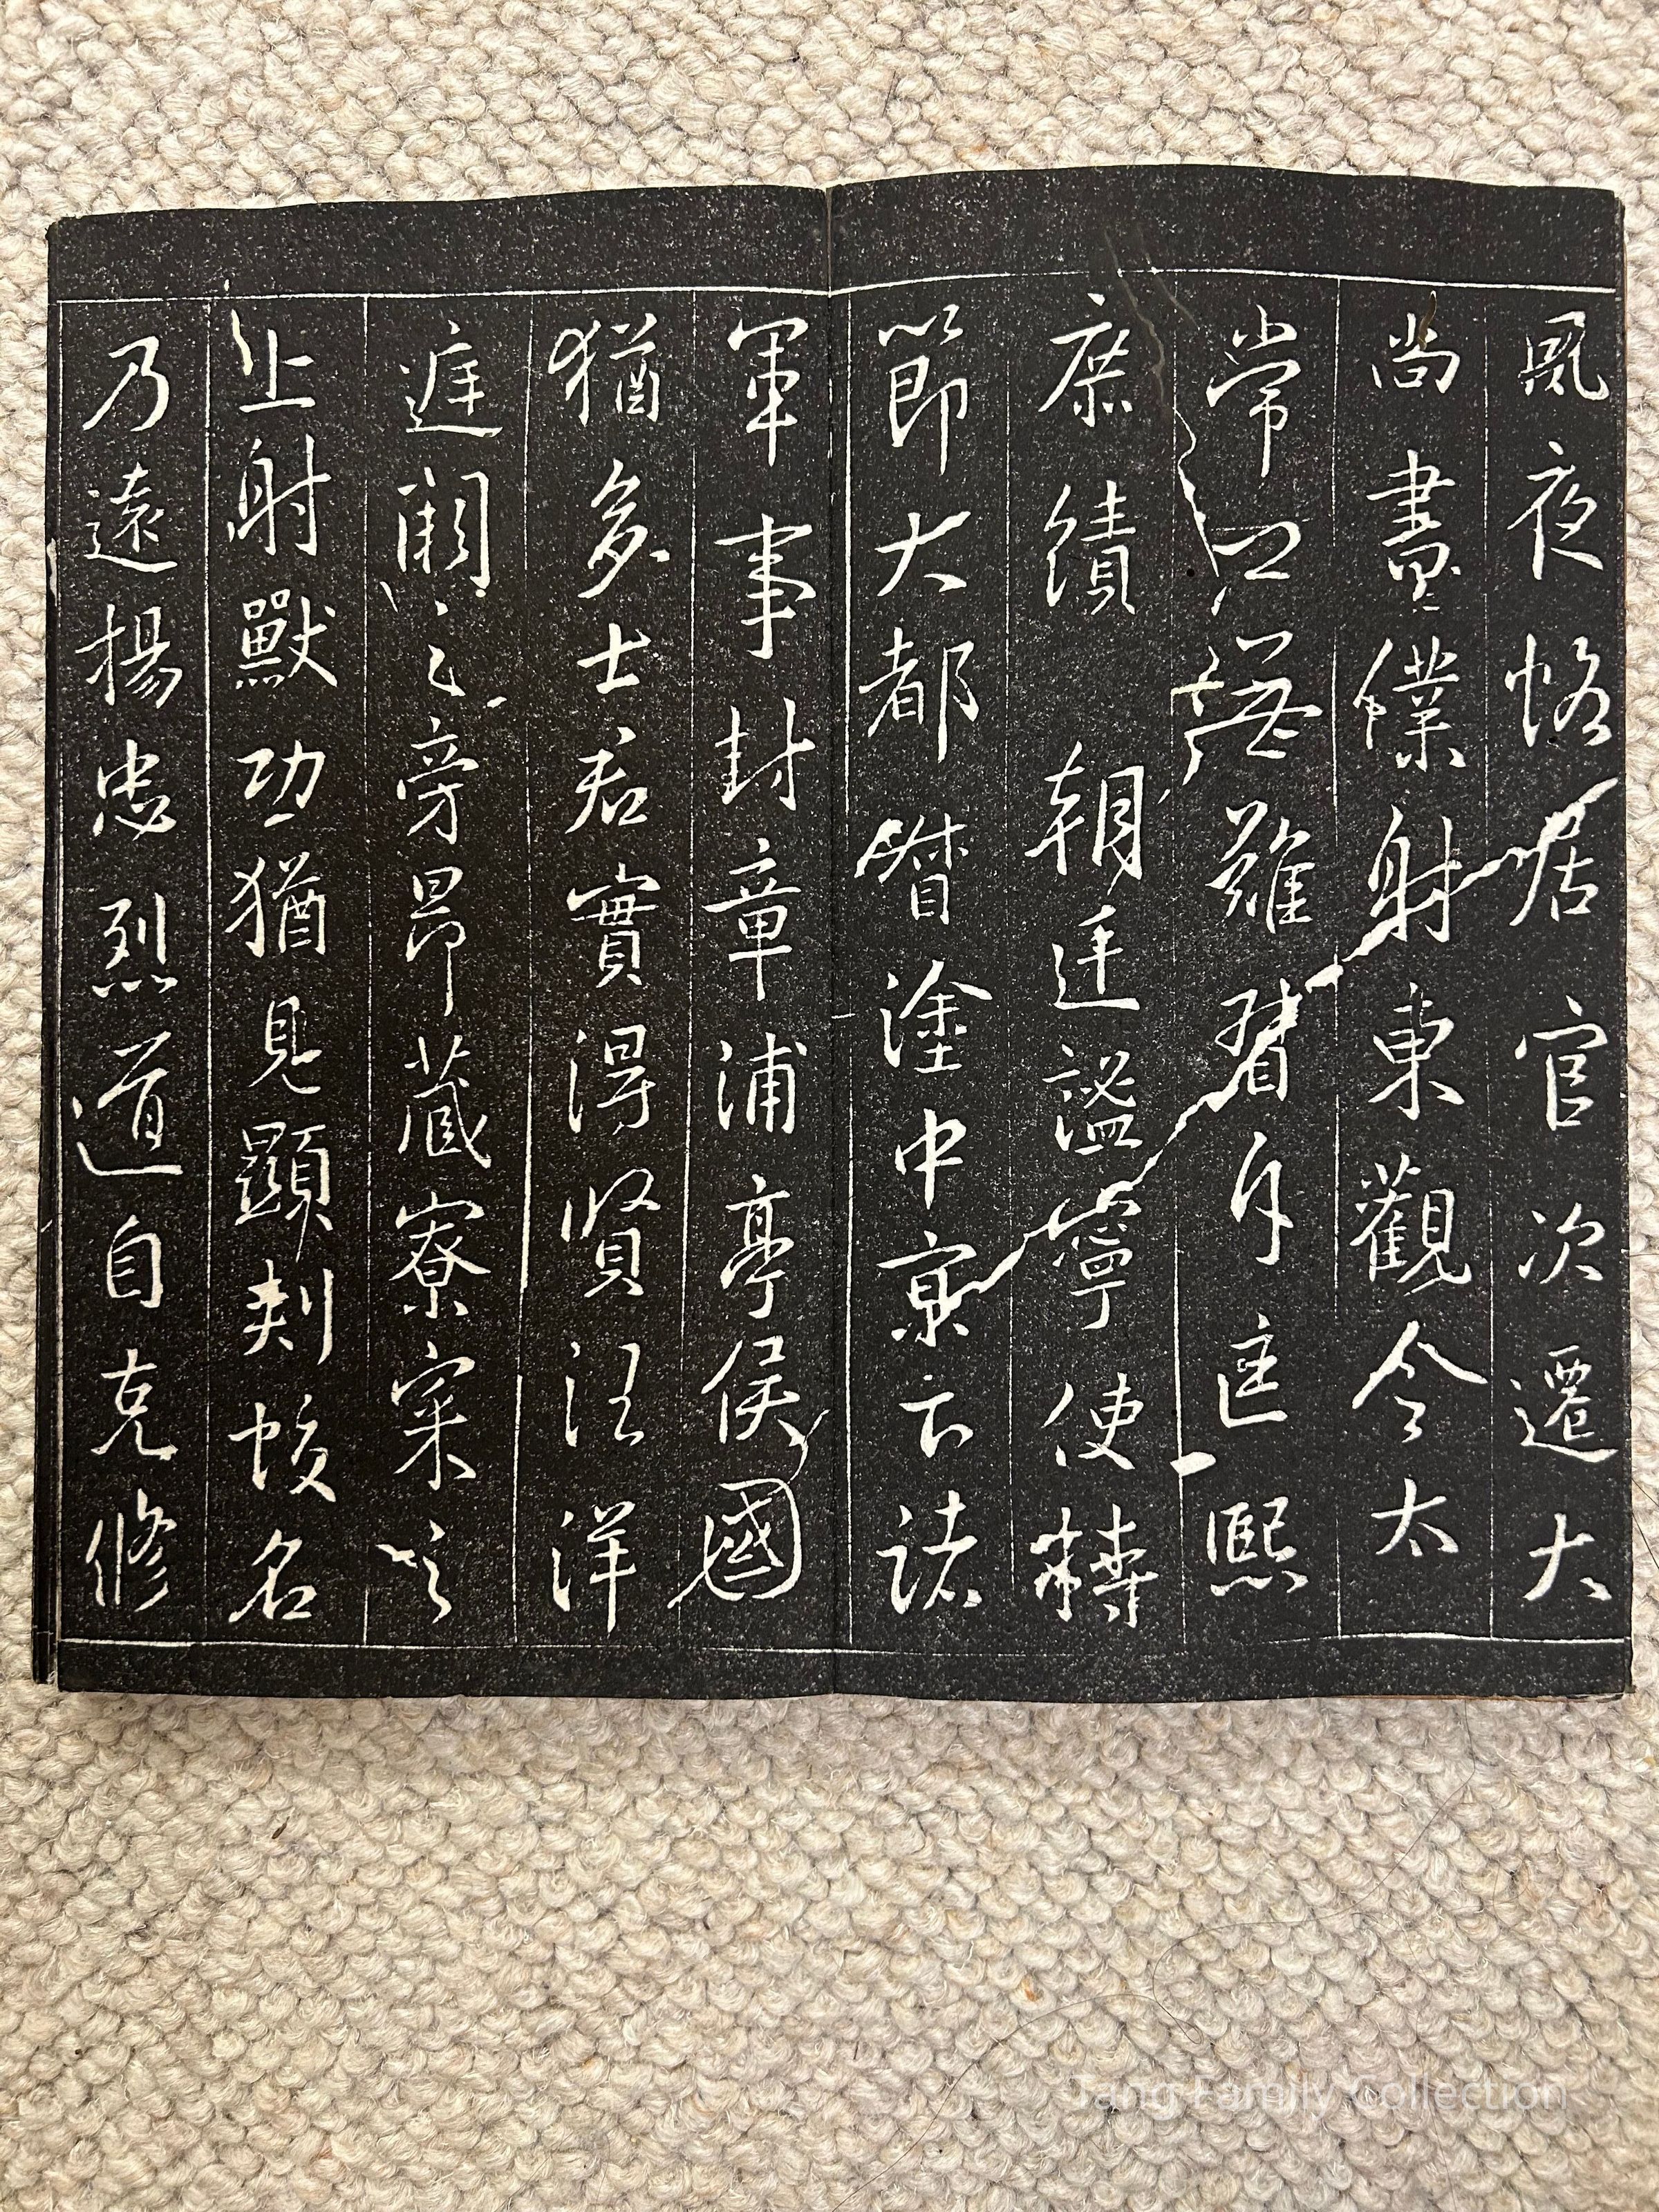 夙夜恪居官次遷大
尚書僕射東觀令太
常卿無難督匡熙
庶績朝廷謐寧使持
節大都督塗中京下諸
軍事封章浦亭侯國
猶多士君實得賢汪洋
廷闕之旁昂藏寮寀之
上射獸功猶見顯刾蛟名
乃遠揚忠烈道自克修
Tang Family Collection